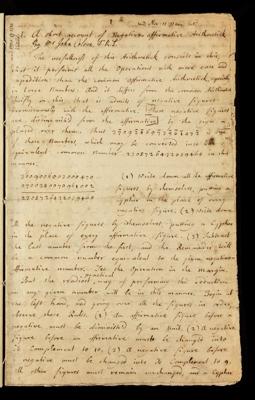 A short account of Negativo-affirmative Arithmetick
By Mr John Colson. F.R.S.
The usefullness of this Arithmetick consists in this
that it performs all the Operations with more ease and
expedition than the common affirmative Arithmetick, especially
in large Numbers. And it differs from the common Arithmetick
chiefly in this, that it admits of negative figures
promiscuously with the affirmative. These negative figures
are distinguished from the affirmative by the sign −
placed over them. Thus
of these Numbers, which may be converted into the
equivalent common Number
manner.
(1.) Write down all the affirmative
figures by themselves, putting a
cypher in the place of every
negative figure. (2.) Write down
all the negative figures by themselves, putting a cypher
in the place of every affirmative figure. (3.) Subtract
the last number from the first, and the Remainder will
be a common number equivalent to the given negativo-
affirmative number. See the Operation in the margin.
But the readiest way of performing the reduction
of any given number will be in this manner. Begin at
the left hand, and going over all the figures in order,
observe these Rules. (1.) An affirmative figure before a
negative must be diminished by an Unit. (2.) A negative
figure before an affirmative must be changed into
its Complement to 10. (3.) A negative figure before
a negative must be changed into its Complement to 9.
All other figures must remain unchanged, and a Cypher